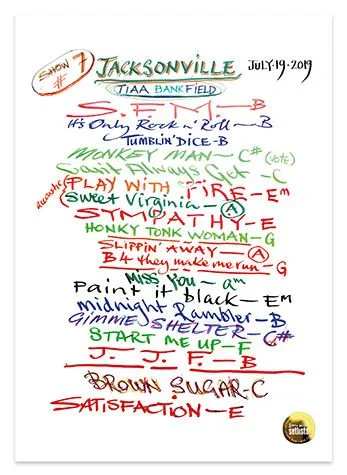 SHOW # 7
JACKSONVILLE
JULY·19·2019
TIAA BANK FIELD
S.F.M.—B
It's Only Rock n' Roll—B
TUMBLIN' DICE-B
MONKEY MAN—C# (VOTE)
Can't Always Get -C
acoustic (PLAY WITH FIRE—Em
(Sweet Virginia—A
SYMPATHY—E
HONKY TONK WOMAN—G
SLIPPIN' AWAY—A
B4 they make me run—G
Miss You—am
paint it black—Em
midnight Rambler—B
GIMME SHELTER—C#
START ME UP—F
J. J. F.—B
BROWN SUGAR-C
SATISFACTION—E
setlists